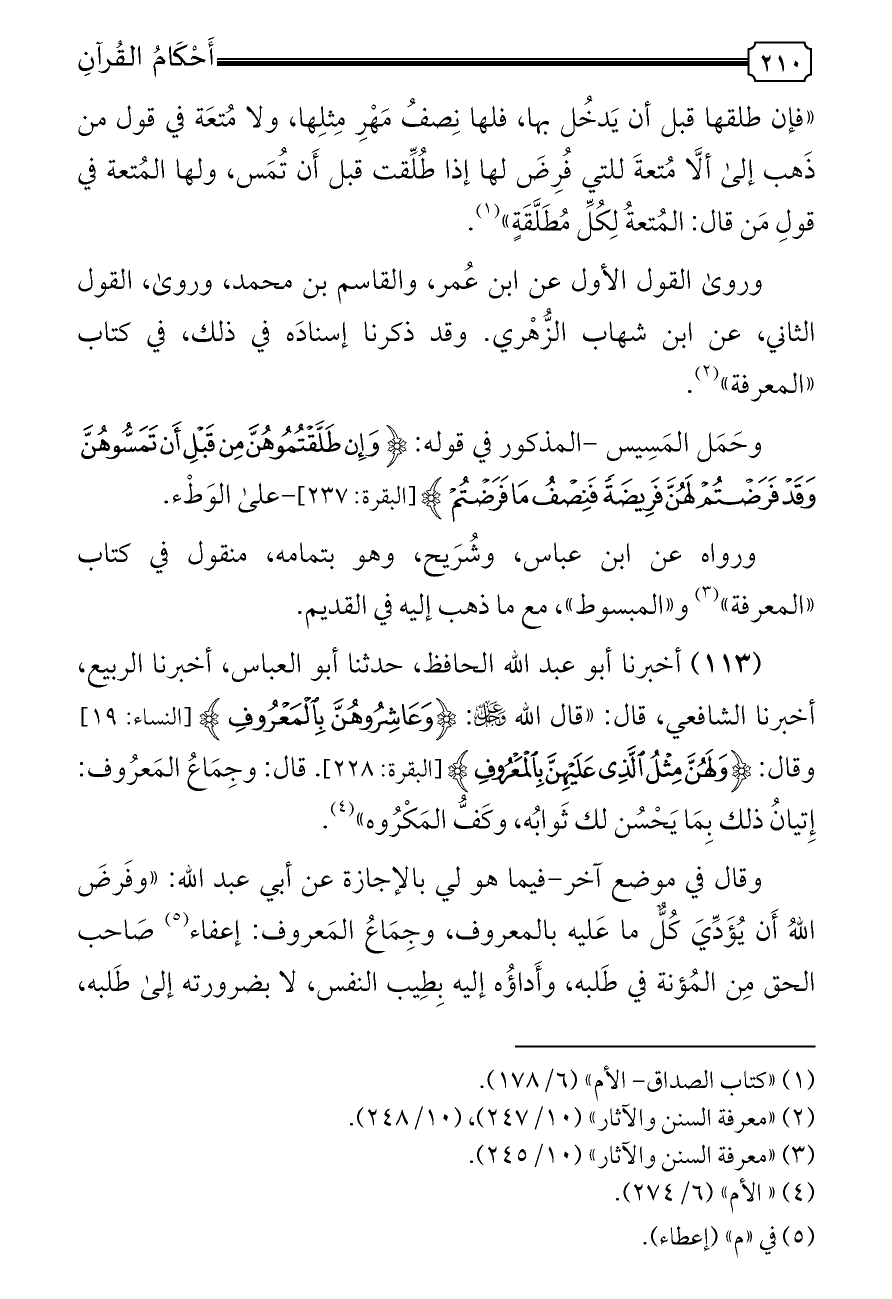 ٢١٠ أَحْكَامُ القُرآنِ
«فإن طلقها قبل أن يَدخُل بها، فلها نِصفُ مَهْرِ مِثلِها، ولا مُتعَة في قول من
ذَهب إلىٰ ألَّا مُتعةَ للتي فُرِضَ لها إذا طُلِّقت قبل أَن تُمَس، ولها المُتعة في
قولِ مَن قال: المُتعةُ لِكُلِّ مُطَلَّقَةٍ»(١).
وروىٰ القول الأول عن ابن عُمر، والقاسم بن محمد، وروىٰ، القول
الثاني، عن ابن شهاب الزُّهْري. وقد ذكرنا إسنادَه في ذلك، في كتاب
«المعرفة»(٢).
وحَمَل المَسِيس –المذكور في قوله: ﴿وَإِن طَلَّقْتُمُوهُنَّ مِن قَبْلِ أَن تَمَسُّوهُنَّ
وَقَدْ فَرَضْتُمْ لَهُنَّ فَرِيضَةً فَنِصْفُ مَا فَرَضْتُمْ﴾ [البقرة: ٢٣٧]–علىٰ الوَطْء.
ورواه عن ابن عباس، وشُرَيح، وهو بتمامه، منقول في كتاب
«المعرفة»(٣) و«المبسوط»، مع ما ذهب إليه في القديم.
(١١٣) أخبرنا أبو عبد الله الحافظ، حدثنا أبو العباس، أخبرنا الربيع،
أخبرنا الشافعي، قال: «قال الله ﷿: ﴿وَعَاشِرُوهُنَّ بِٱلْمَعْرُوفِ﴾ [النساء: ١٩]
وقال: ﴿وَلَهُنَّ مِثْلُ ٱلَّذِى عَلَيْهِنَّ بِٱلْمَعْرُوفِ﴾ [البقرة: ٢٢٨]. قال: وجِمَاعُ المَعرُوف:
إِتيانُ ذلك بِمَا يَحْسُن لك ثَوابُه، وكَفُّ المَكْرُوه»(٤).
وقال في موضع آخر–فيما هو لي بالإجازة عن أبي عبد الله: «وفَرضَ
اللهُ أَن يُؤَدِّيَ كُلٌّ ما عَليه بالمعروف، وجِمَاعُ المَعروف: إعفاء(٥) صَاحب
الحق مِن المُؤنة في طَلبه، وأَداؤُه إليه بِطِيب النفس، لا بضرورته إلىٰ طَلبه،
(١) «كتاب الصداق– الأم» (٦/ ١٧٨).
(٢) «معرفة السنن والآثار» (١٠/ ٢٤٧)، (١٠/ ٢٤٨).
(٣) «معرفة السنن والآثار» (١٠/ ٢٤٥).
(٤) « الأم» (٦/ ٢٧٤).
(٥) في «م» (إعطاء).